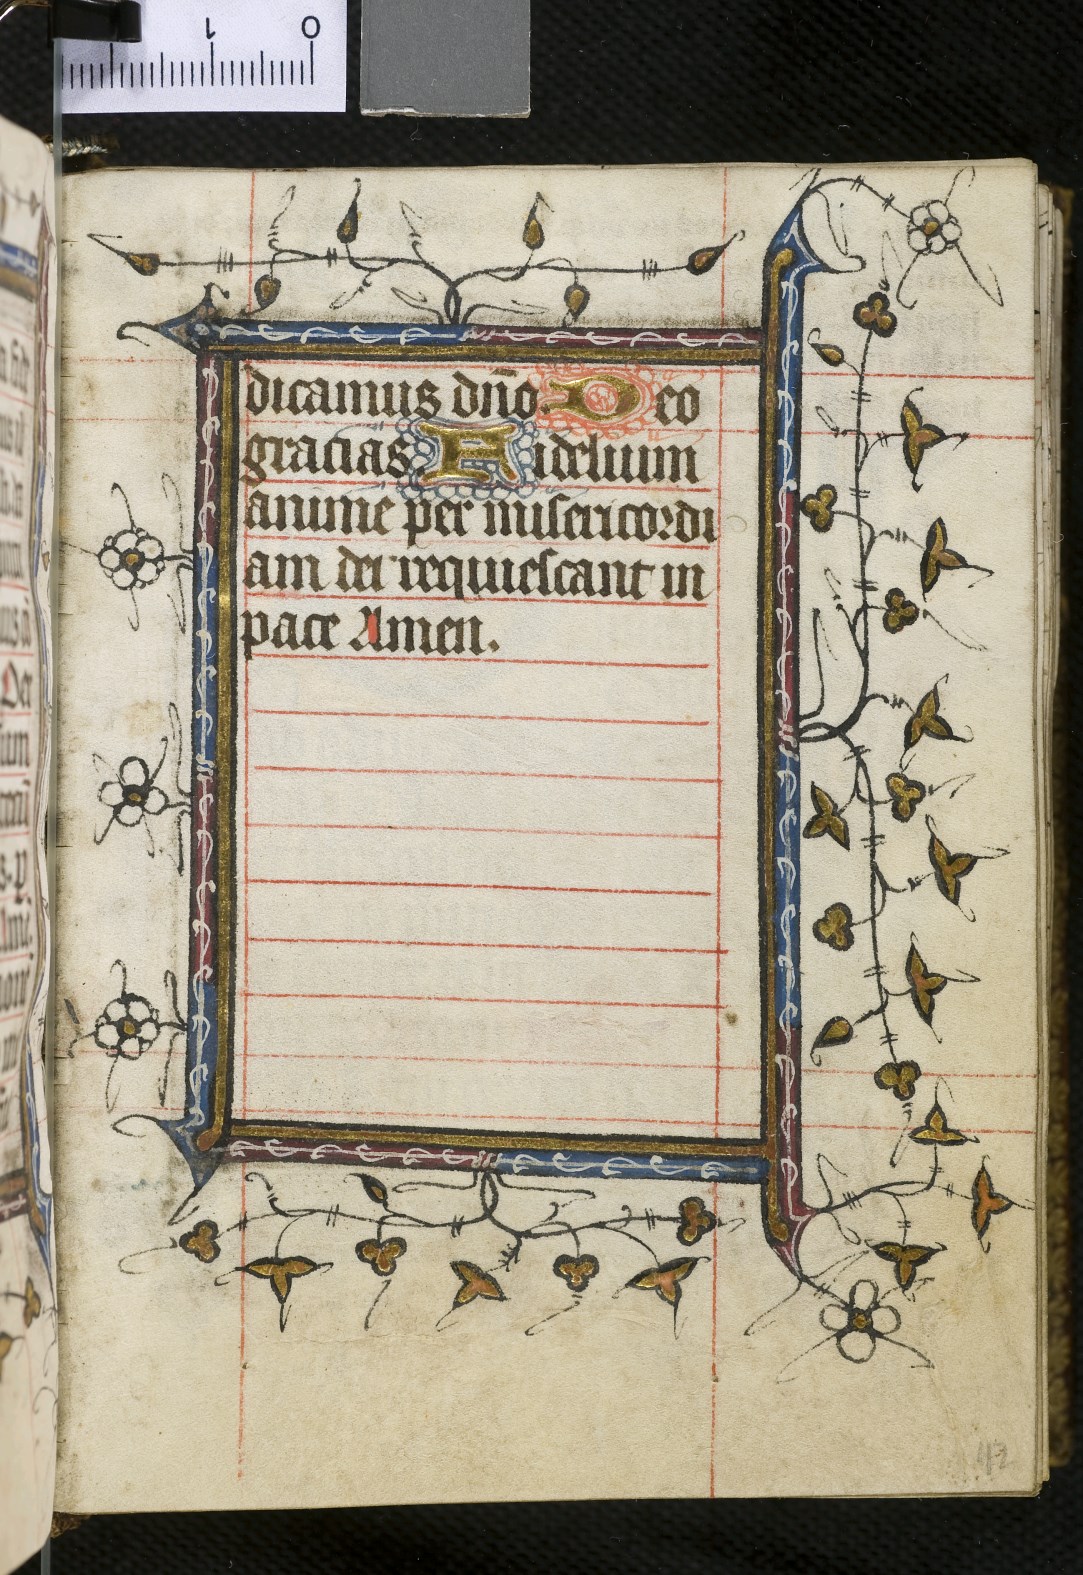 1 0
dicamus dn̄o. Deo
gracias Fidelium
anime per misericordi
am dei requiescant in
pace Amen.
42